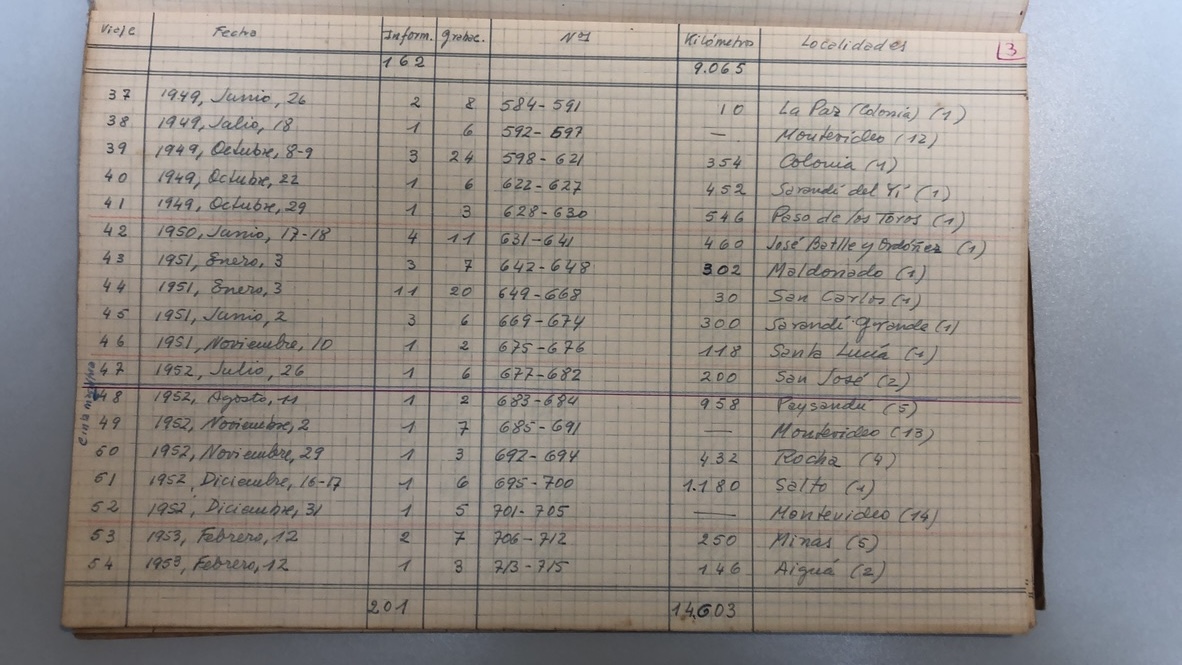 Viaje Fecha Inform. grabac. Nos Kilómetro Localidades 3
162 9.065
37 1949, Junio, 26 2 8 584-591 10 La Paz (Colonia) (1)
38 1949, Julio, 18 1 6 592-597 — Montevideo (12)
39 1949, Octubre, 8-9 3 24 598-621 354 Colonia (1)
40 1949, Octubre, 22 1 6 622-627 452 Sarandí del Yí (1)
41 1949, Octubre, 29 1 3 628-630 546 Paso de los Toros (1)
42 1950, Junio, 17-18 4 11 631-641 460 José Batlle y Ordóñez (1)
43 1951, Enero, 3 3 7 642-648 302 Maldonado (1)
44 1951, Enero, 3 11 20 649-668 30 San Carlos (1)
45 1951, Junio, 2 3 6 669-674 300 Sarandí Grande (1)
46 1951, Noviembre, 10 1 2 675-676 118 Santa Lucía (1)
47 1952, Julio, 26 1 6 677-682 200 San José (2)
48 1952, Agosto, 11 1 2 683-684 958 Paysandú (5)
49 1952, Noviembre, 2 1 7 685-691 — Montevideo (13)
50 1952, Noviembre, 29 1 3 692-694 432 Rocha (4)
51 1952, Diciembre, 16-17 1 6 695-700 1.180 Salto (1)
52 1952, Diciembre, 31 1 5 701-705 — Montevideo (14)
53 1953, Febrero, 12 2 7 706-712 250 Minas (5)
54 1953, Febrero, 12 1 3 713-715 146 Aiguá (2)
201 14.603